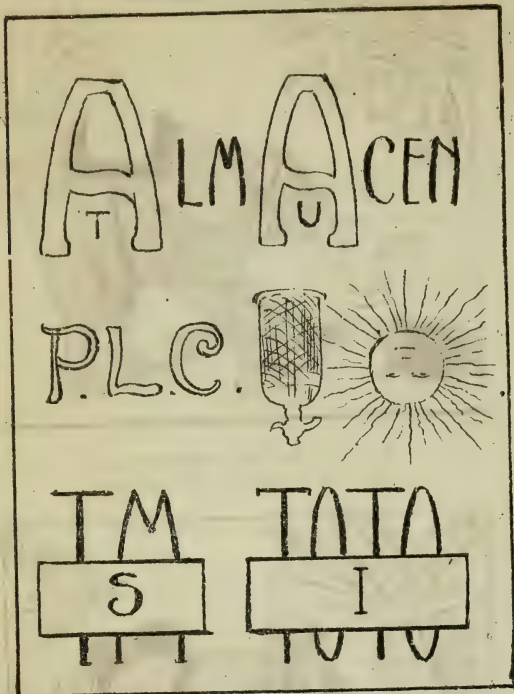 ALMACEN
T U
P.L.C.
TM TOTO
S I